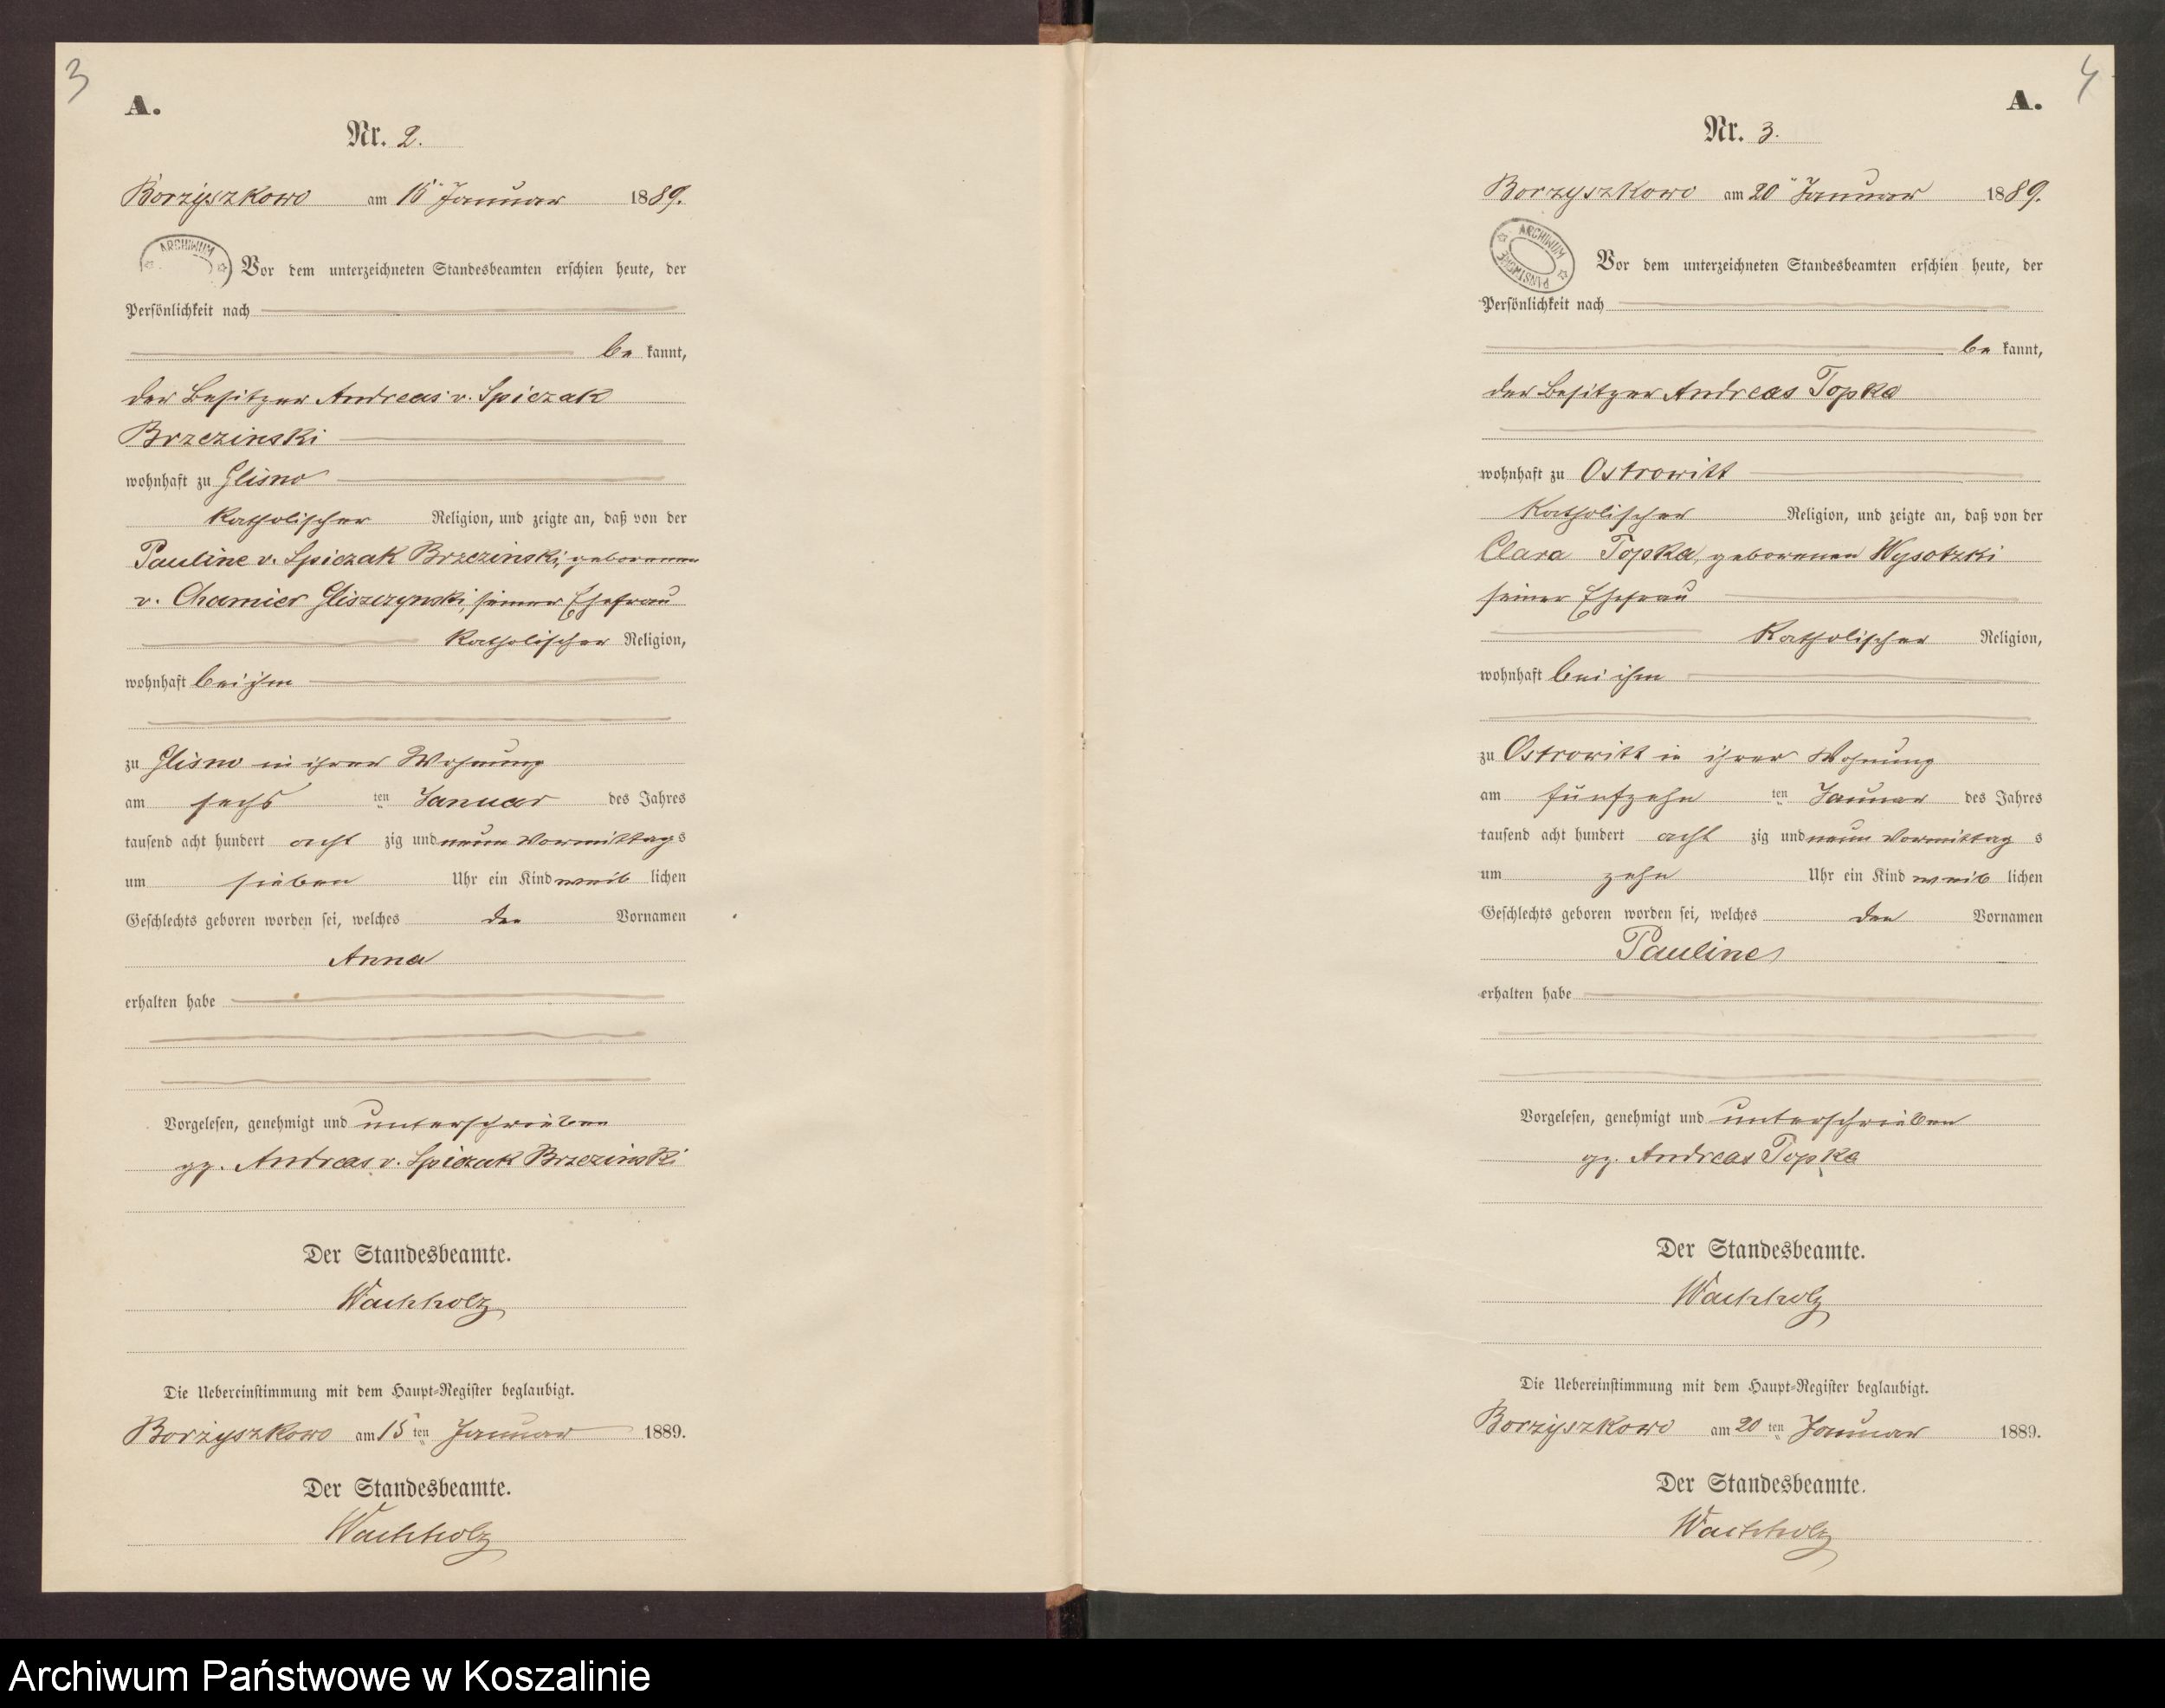 3
A.
Nr. 2.
Borzyszkowo am 15ten Januar 1889.
ARCHIWUM
Vor dem unterzeichneten Standesbeamten erschien heute, der
Persönlichkeit nach
be kannt,
der Besitzer Andreas v. Spiczak
Brzezinski
wohnhaft zu Glisno
katholischer Religion, und zeigte an, daß von der
Pauline v. Spiczak Brzezinski, geborenen
v. Chamier Gliszczynski, seiner Ehefrau
katholischer Religion,
wohnhaft bei ihm
zu Glisno in ihrer Wohnung
am sechs ten Januar des Jahres
tausend acht hundert acht zig und neun Vormittag s
um sieben Uhr ein Kind weib lichen
Geschlechts geboren worden sei, welches den Vornamen
Anna
erhalten habe
Vorgelesen, genehmigt und unterschrieben
gz. Andreas v. Spiczak Brzezinski
Der Standesbeamte.
Wachholz
Die Uebereinstimmung mit dem Haupt-Register beglaubigt.
Borzyszkowo am 15 ten Januar 1889.
Der Standesbeamte.
Wachholz
4
A.
Nr. 3.
Borzyszkowo am 20ten Januar 1889.
ARCHIWUM PAŃSTWOWE
Vor dem unterzeichneten Standesbeamten erschien heute, der
Persönlichkeit nach
be kannt,
der Besitzer Andreas Topka
wohnhaft zu Ostrowitt
katholischer Religion, und zeigte an, daß von der
Clara Topka, geborenen Wysotzki
seiner Ehefrau
katholischer Religion,
wohnhaft bei ihm
zu Ostrowitt in ihrer Wohnung
am fünfzehn ten Januar des Jahres
tausend acht hundert acht zig und neun Vormittag s
um zehn Uhr ein Kind weib lichen
Geschlechts geboren worden sei, welches den Vornamen
Pauline
erhalten habe
Vorgelesen, genehmigt und unterschrieben
gz. Andreas Topka
Der Standesbeamte.
Wachholz
Die Uebereinstimmung mit dem Haupt-Register beglaubigt.
Borzyszkowo am 20 ten Januar 1889.
Der Standesbeamte.
Wachholz
Archiwum Państwowe w Koszalinie